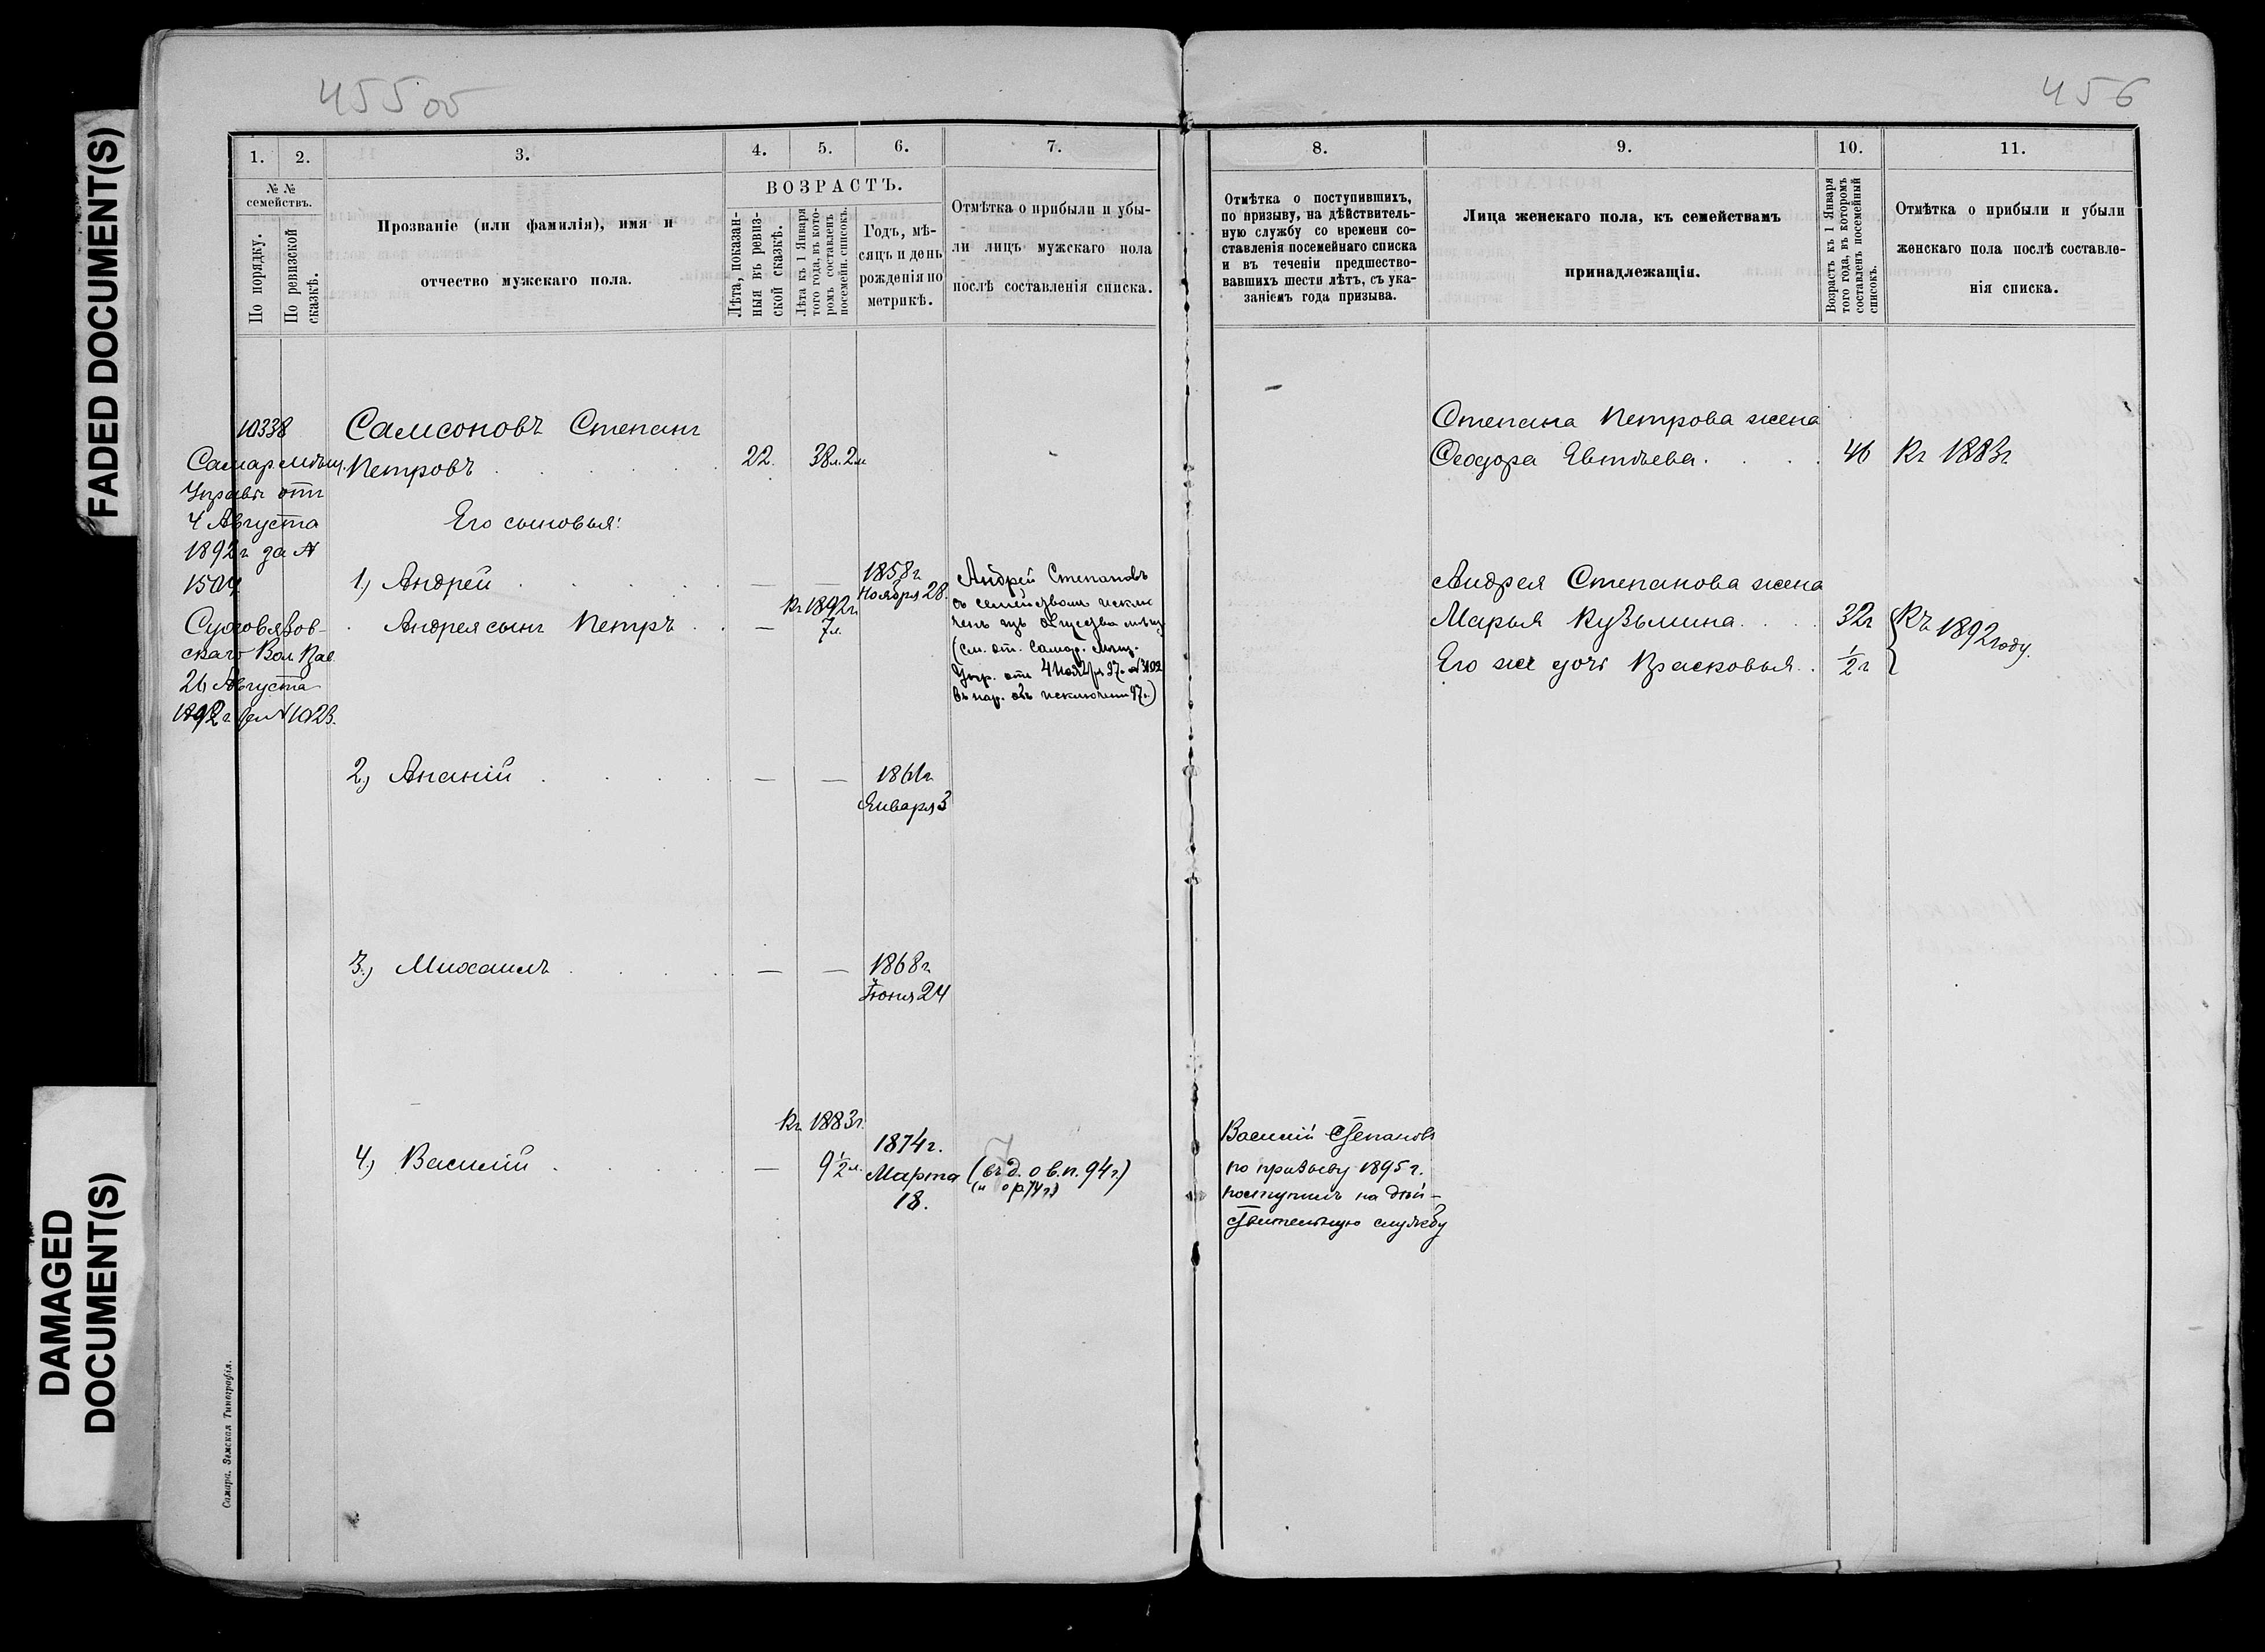 FADED DOCUMENT(S)
DAMAGED
DOCUMENT(S)
455 об
1. 2. 3. 4. 5. 6. 7.
№ №
семействъ.
По порядку.
По ревизской
сказкѣ.
Прозваніе (или фамилія), имя и
отчество мужскаго пола.
ВОЗРАСТЪ.
Лѣта, показан-
ныя въ ревиз-
ской сказкѣ.
Лѣта къ 1 Января
того года, въ кото-
ромъ составленъ
посемейн. списокъ.
Годъ, мѣ-
сяцъ и день
рожденія по
метрикѣ.
Отмѣтка о прибыли и убы-
ли лицъ мужскаго пола
послѣ составленія списка.
10338
Самар мѣщ.
Управы отъ
4 Августа
1892 г за №
1504
ской Вол
26 Августа
1892 г за № 1023.
Самсоновъ Степанъ
Петровъ 22. 38 л. 2 м
Его сыновья:
1) Андрей — — 1858 г
Ноября 28.
Андрея сынъ Петръ — Къ 1892 г.
7 л.
Андрей Степановъ
съ семействомъ исклю
ченъ изъ общества мѣщ
(см. от. Самар. мѣщ.
Упр. отъ 4 Ноября 97 г. № 3102
въ нар. объ исключеніи 97 г.)
2) Ананій — — 1861 г
Января 3
3) Михаилъ — — 1868 г
Іюня 24
4) Василій — Къ 1883 г.
9 1/2 л.
1874 г.
Марта
18.
(въ д. о в. п. 94 г.)
(и о р. 74 г.)
Самара. Земская Типографія.
456
8. 9. 10. 11.
Отмѣтка о поступившихъ,
по призыву, на дѣйствитель-
ную службу со времени со-
ставленія посемейнаго списка
и въ теченіи предшество-
вавшихъ шести лѣтъ, съ ука-
заніемъ года призыва.
Лица женскаго пола, къ семействамъ
принадлежащія.
Возрастъ къ 1 Января
того года, въ которомъ
составленъ посемейный
списокъ.
Отмѣтка о прибыли и убыли
женскаго пола послѣ составле-
нія списка.
Степана Петрова жена
Ѳеодора Евтѣева 46 Къ 1883 г
Андрея Степанова жена
Марья Кузьмина 32 г Къ 1892 году.
Его же дочь Прасковья 1/2 г
Василій Степановъ
по призыву 1895 г.
поступилъ на дѣй-
ствительную службу